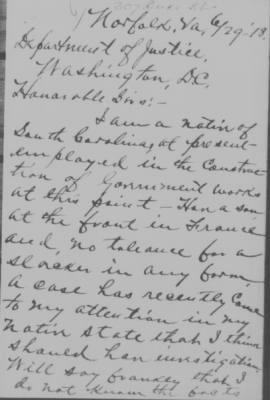 Norfolk, Va, 6/29-18.
Department of Justice,
Washington, D.C.
Honorable Sirs:-
I am a native of
South Carolina, at present
employed in the Construc-
tion of Government works
at this point - Have a son
at the front in France
and, no tolerance for a
slacker in any form,
a case has recently come
to my attention in my
native state that I think
should have investigation
Will say frankly that I
do not know the facts